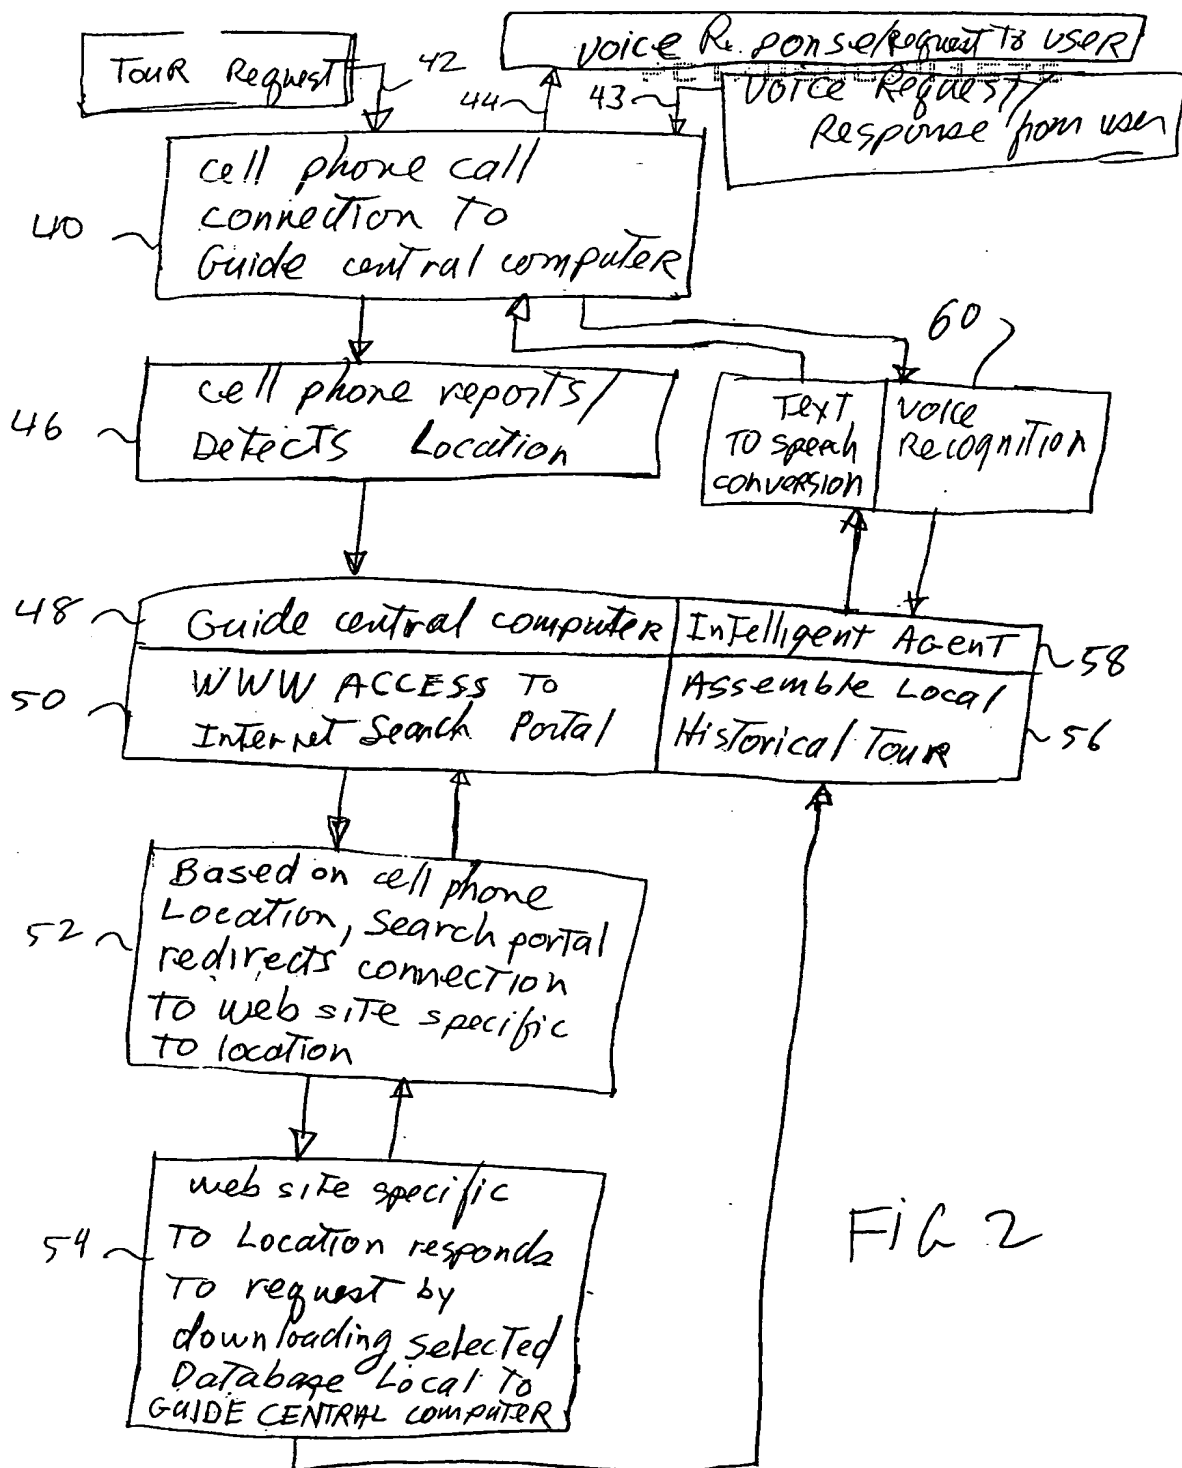 Voice Response/Request To User
Tour Request
42
44
43
Voice Request/
Response from user
cell phone call
connection To
Guide central computer
40
60
cell phone reports/
Detects Location
46
Text
To speech
conversion
Voice
Recognition
48
Guide central computer
Intelligent Agent
58
50
WWW ACCESS To
Internet Search Portal
Assemble Local
Historical Tour
56
Based on cell phone
Location, Search portal
redirects connection
To web site specific
To location
52
web site specific
To Location responds
To request by
downloading selected
Database Local To
GUIDE CENTRAL computer
54
FiG 2